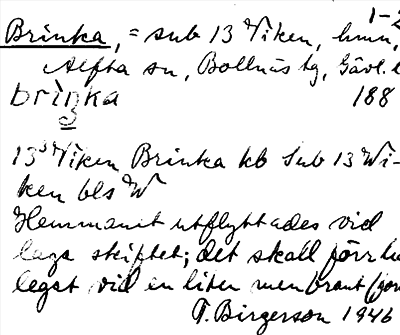 1-2
Brinka, = sub 13 Viken, hmn,
Alfta sn, Bollnäs tg, Gävl. l
brìŋka 188
13 Viken Brinka kb Sub 13 Wi-
ken bls W
Hemmanet utflyttades vid
laga skiftet; det skall förr ha
legat vid en liten men brant
T. Birgerson 1946